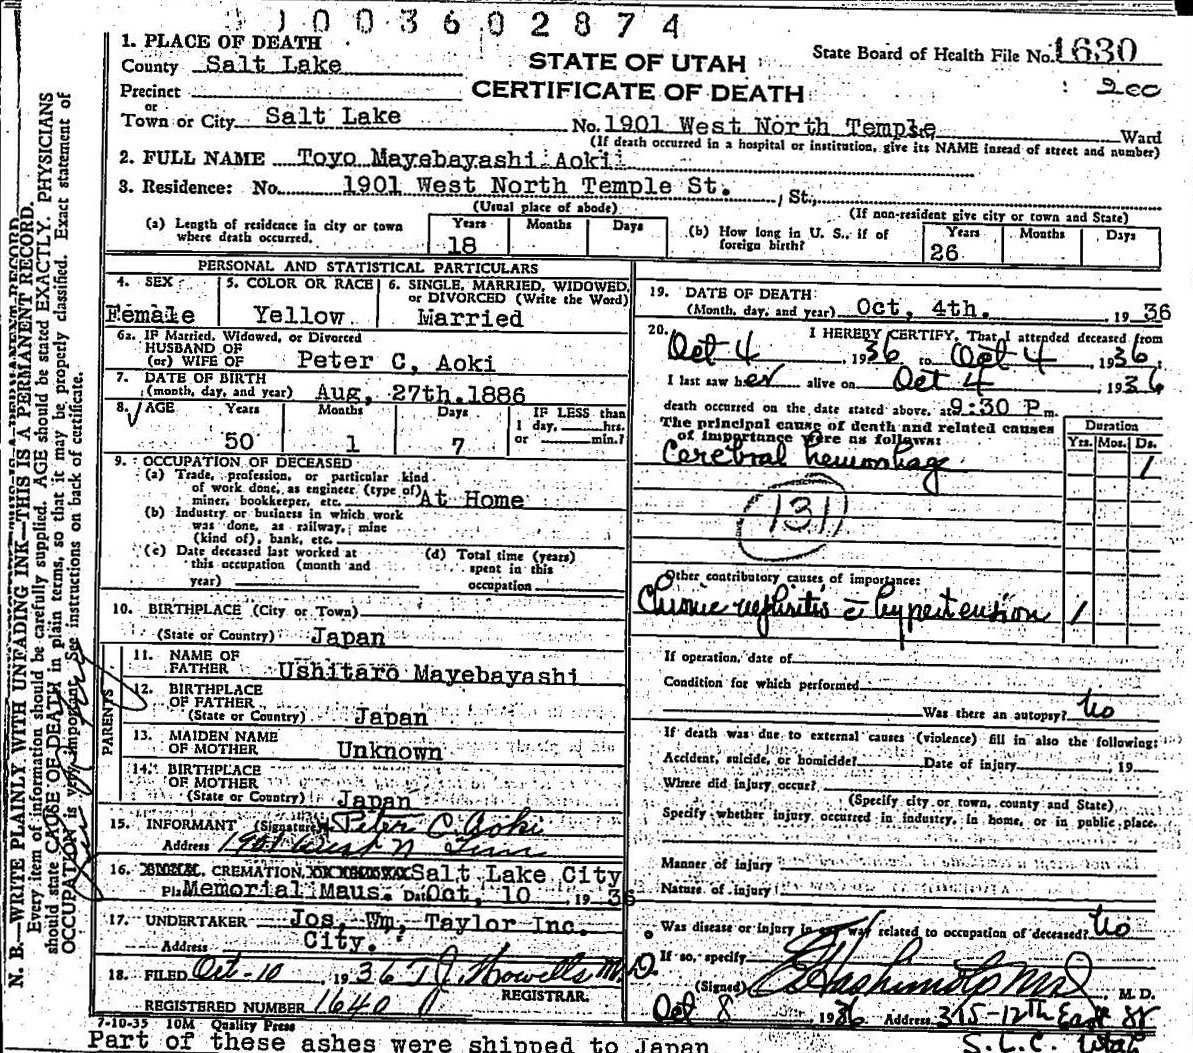 1003602874
1. PLACE OF DEATH
County Salt Lake
STATE OF UTAH
State Board of Health File No. 1630
Precinct
CERTIFICATE OF DEATH
200
or
Town or City Salt Lake No. 1901 West North Temple Ward
(If death occurred in a hospital or institution, give its NAME insead of street and number)
2. FULL NAME Toyo Mayebayashi Aoki
3. Residence: No. 1901 West North Temple St. , St.,
(Usual place of abode) (If non-resident give city or town and State)
(a) Length of residence in city or town where death occurred. Years 18 Months Days
(b) How long in U. S., if of foreign birth? Years 26 Months Days
PERSONAL AND STATISTICAL PARTICULARS
4. SEX Female
5. COLOR OR RACE Yellow
6. SINGLE, MARRIED, WIDOWED, or DIVORCED (Write the Word) Married
6a. IF Married, Widowed, or Divorced
HUSBAND OF
(or) WIFE OF Peter C, Aoki
7. DATE OF BIRTH
(month, day, and year) Aug, 27th.1886
8. AGE Years 50 Months 1 Days 7
IF LESS than
1 day, hrs.
or min.?
9. OCCUPATION OF DECEASED
(a) Trade, profession, or particular kind
of work done, as engineer (type of)
miner, bookkeeper, etc. At Home
(b) Industry or business in which work
was done, as railway, mine
(kind of), bank, etc.
(c) Date deceased last worked at
this occupation (month and
year)
(d) Total time (years)
spent in this
occupation
10. BIRTHPLACE (City or Town)
(State or Country) Japan
PARENTS
11. NAME OF
FATHER Ushitaro Mayebayashi
12. BIRTHPLACE
OF FATHER
(State or Country) Japan
13. MAIDEN NAME
OF MOTHER Unknown
14. BIRTHPLACE
OF MOTHER
(State or Country) Japan
15. INFORMANT (Signature) Peter C. Aoki
Address 1901 West N. Tem
16. BURIAL, CREMATION, OR REMOVAL Salt Lake City
Pla Memorial Maus. Date Oct, 10 , 19 36
17. UNDERTAKER Jos, Wm, Taylor Inc.
Address City.
18. FILED Oct-10 , 1936 T J Howells M.D.
REGISTRAR.
REGISTERED NUMBER 1640
7-10-35 10M Quality Press
19. DATE OF DEATH
(Month, day, and year) Oct, 4th. , 19 36
20. I HEREBY CERTIFY, That I attended deceased from
Oct 4 , 1936 to Oct 4 , 1936
I last saw her alive on Oct 4 , 1936
death occurred on the date stated above, at 9:30 P m.
The principal cause of death and related causes
of importance were as follows:
Duration
Yrs. Mos. Ds.
Cerebral hemorrhage 1
131
Other contributory causes of importance:
Chronic nephritis c hypertension 1
If operation, date of
Condition for which performed
Was there an autopsy? No
If death was due to external causes (violence) fill in also the following:
Accident, suicide, or homicide? Date of injury , 19
Where did injury occur?
(Specify city or town, county and State)
Specify whether injury occurred in industry, in home, or in public place.
Manner of injury
Nature of injury
Was disease or injury in any way related to occupation of deceased? No
If so, specify
(Signed) E Hashimoto M.D , M. D.
Oct 8 1936 Address 315-12th East St
S.L.C. Utah
Part of these ashes were shipped to Japan
N. B.—WRITE PLAINLY WITH UNFADING INK—THIS IS A PERMANENT RECORD.
Every item of information should be carefully supplied. AGE should be stated EXACTLY. PHYSICIANS
should state CAUSE OF DEATH in plain terms, so that it may be properly classified. Exact statement of
OCCUPATION is very important. See instructions on back of certificate.